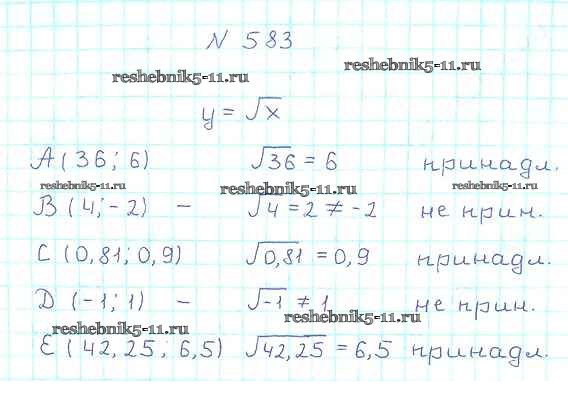 N 583
reshebnik5-11.ru
reshebnik5-11.ru
y = √x
A (36; 6) √36 = 6 принадл.
reshebnik5-11.ru reshebnik5-11.ru reshebnik5-11.ru
B (4; -2) - √4 = 2 ≠ -2 не прин.
C (0,81; 0,9) √0,81 = 0,9 принадл.
D (-1; 1) - √-1 ≠ 1 не прин.
reshebnik5-11.ru reshebnik5-11.ru
E (42,25; 6,5) √42,25 = 6,5 принадл.